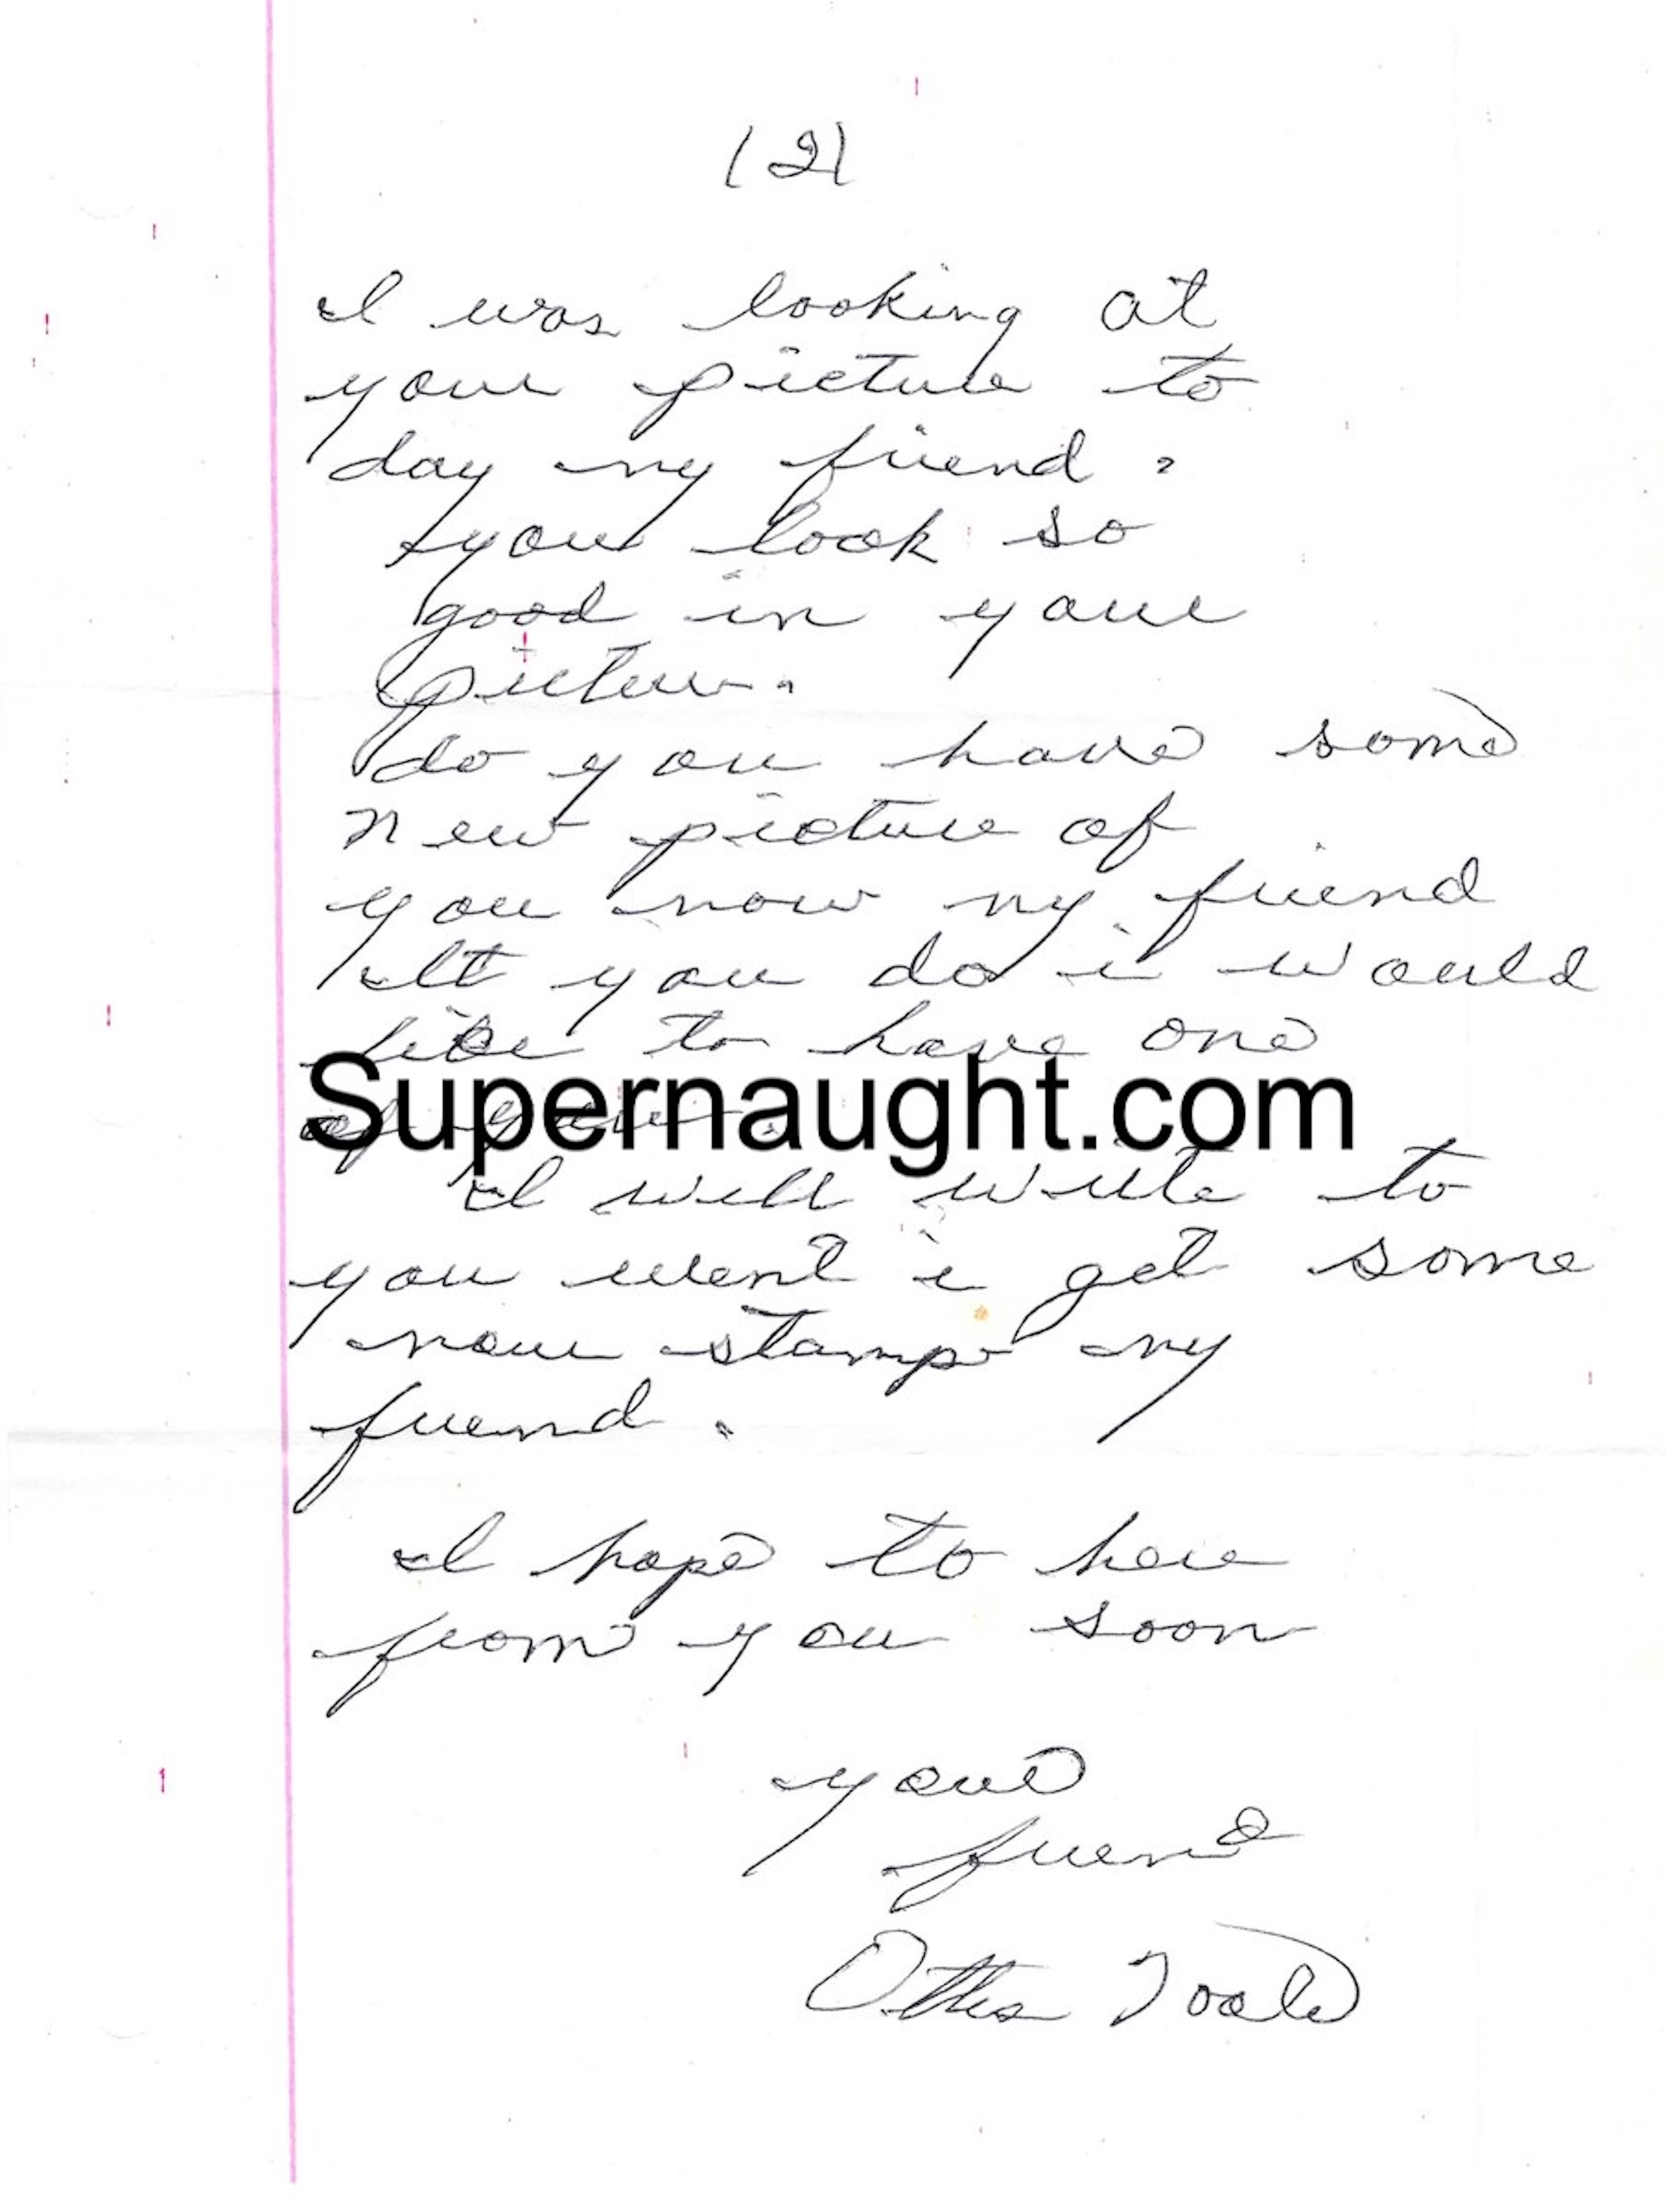 (2)
I was looking at
your picture to
day my friend.
you look so
good in your
picture.
do you have some
new picture of
you now my friend
ilt you do i would
like to have one
of you.
Supernaught.com
I will write to
you went i get some
now stamps my
friend.
I hope to here
from you soon
your
friend
Ottis Toole